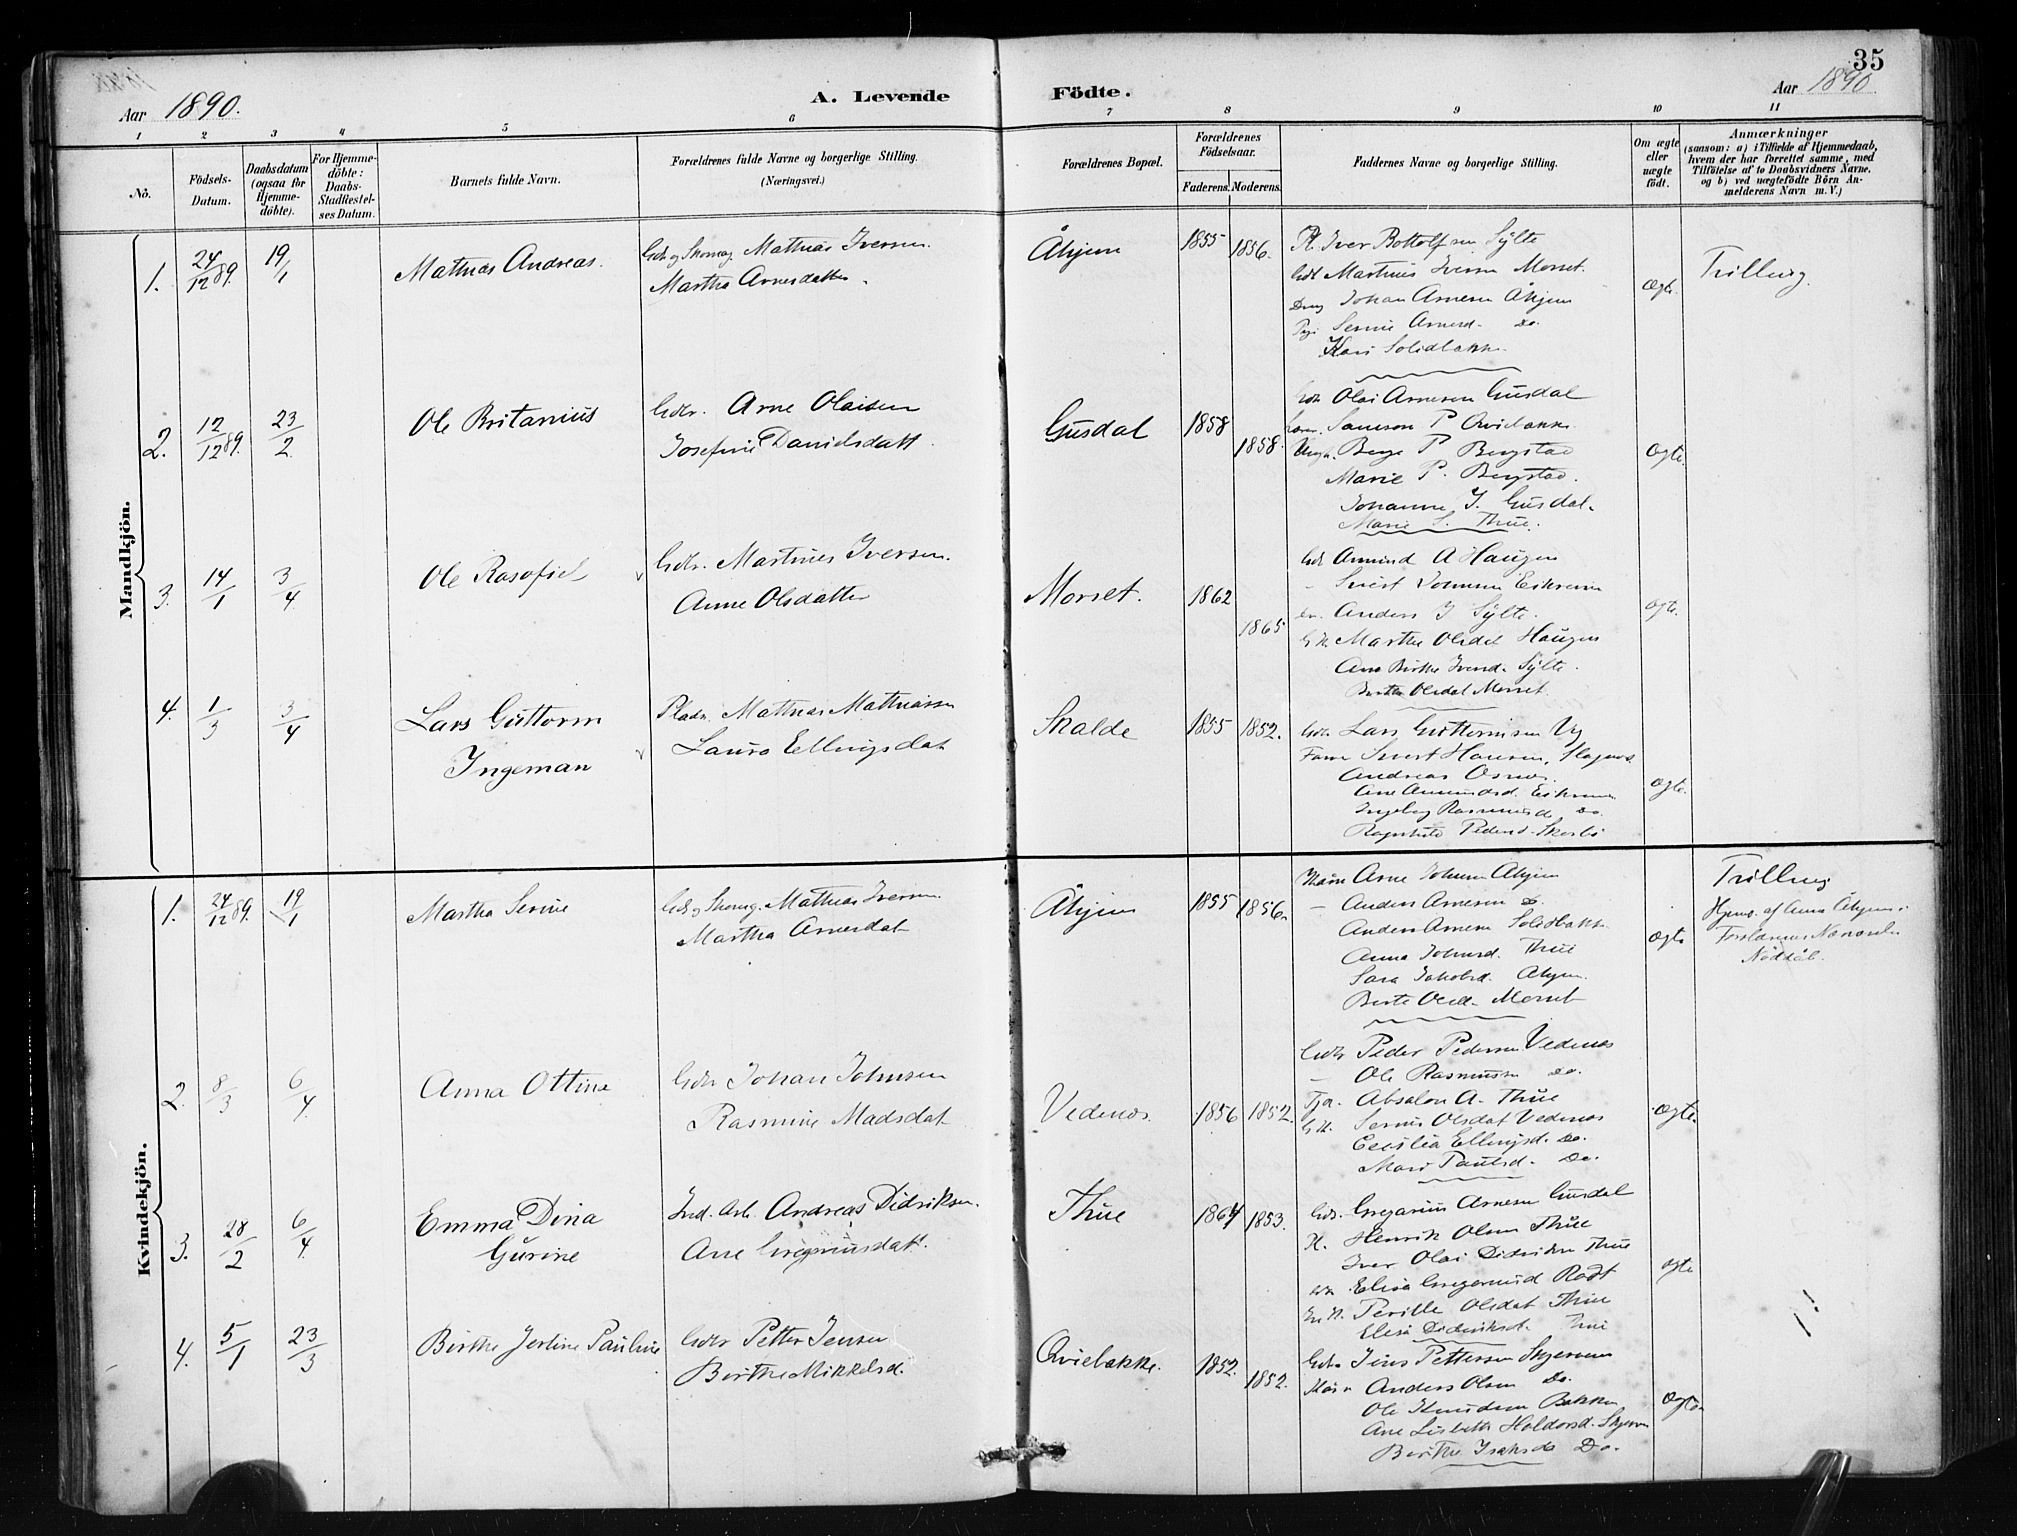 35
Aar 1890.
A. Levende Födte.
Aar 1890.
1 2 3 4 5 6 7 8 9 10 11
Nö.
Födsels-Datum.
Daabsdatum (ogsaa for Hjemme-döbte).
For Hjemme-döbte: Daabs-Stadfæstel-ses Datum.
Barnets fulde Navn.
Forældrenes fulde Navne og borgerlige Stilling. (Næringsvei.)
Forældrenes Bopæl.
Forældrenes Födselsaar.
Faderens. Moderens.
Faddernes Navne og borgerlige Stilling.
Om ægte eller uægte födt.
Anmærkninger (saasom: a) i Tilfælde af Hjemmedaab, hvem der har forrettet samme, med Tilföielse af to Daabsvidners Navne, og b) ved uægtefödte Börn An-melderens Navn m. V.)
Mandkjön.
1. 24/12 89. 19/1 Mathias Andreas.
Gdr og Skomag Mathias Iversen
Martha Arnesdatter.
Åhjem 1855 1856.
Pl. Iver Bottolfsen Sylte
Gdr Martinus Iversen Morset.
Drng Johan Arnesen Åhjem
Pige Serine Arnesd. Do.
Kari Solidbakk
Ægte. Trilling.
2. 12/12 89. 23/2 Ole Britanius
Gdr. Arne Olaisen
Josefine Danielsdatt.
Gusdal 1858 1858.
Gdr Olai Arnesen Gusdal
Samson P Qviebakke
Unga. Berge P Bergstad
Marie P. Bergstad.
Johanne J. Gusdal.
Marie S. Thue.
Ægte.
3. 14/1 3/4 Ole Rasofiel
Gdr. Martinus Iversen.
Anne Olsdatter
Morset. 1862 1865
Gdr Amund A Haugen
Sivert Johnsen Eikrem
Anders J Sylte.
Marthe Olsdat Haugen
Ane Birthe Iversd. Sylte.
Berthe Olsdat Morset
Ægte.
4. 1/3 3/4 Lars Guttorm
Ingeman
Pladr. Mathias Mathiassen
Laura Ellingsdat
Skalde 1855 1852.
Gdr. Lars Guttormsen Vig
Sivert Hansen, Slagnes
Andreas Osnes.
Ane Amundsd. Eikrem
Ingeborg Rasmusd Do.
Ragnhild Pedersd. Skorbö
Ægte.
Kvindekjön.
1. 24/12 89. 19/1 Martha Serine
Gdr og Skomg. Mathias Iversen
Martha Arnesdat
Åhjem 1855 1856.
Arne Johnsen Åhjem
– Anders Arnesen Do.
Anders Arnesen Solidbakk
Anna Johnsd. Thue
Sara Jakobsd. Åhjem
Berte Olsd. Morset
Ægte
Trilling
Hjmd. af Anna Åhjem i
Forældrenes Nærværelse
Nöddåb.
2. 8/3 6/4 Anna Ottine
Gdr Johan Johnsen
Rasmine Madsdat
Vedenes. 1856 1852.
Gdr Peder Pedersen Vedenes
– Ole Rasmussen Do.
Tja. Absalon A. Thue
Serine Olsdat Vedenes
Cecilia Ellingsd. Do.
Mari Paulsd. Do.
Ægte.
3. 28/2 6/4 Emma Dina
Gurine
Ind. Arb. Andreas Didriksen.
Ane Gregoriusdatt.
Thue 1864 1853.
Gdr. Gregorius Arnesen Gusdal
Henrik Olsen Thue
Iver Olai Didriksen Thue
Elisa Gregoriusd Rødt
Pernille Olsdat Thue
Elisa Didriksd. Thue
Ægte
4. 5/1 23/3 Birthe Jertine Pauline
Gdr Petter Jensen
Berthe Mikkelsd.
Qviebakke. 1852. 1852.
Gdr Jens Pettersen Skjerven
Anders Olsen Do.
Ole Knudsen Bakken
Ane Lisbeth Haldorsd. Skjerven
Berthe Isaksd Do.
Ægte